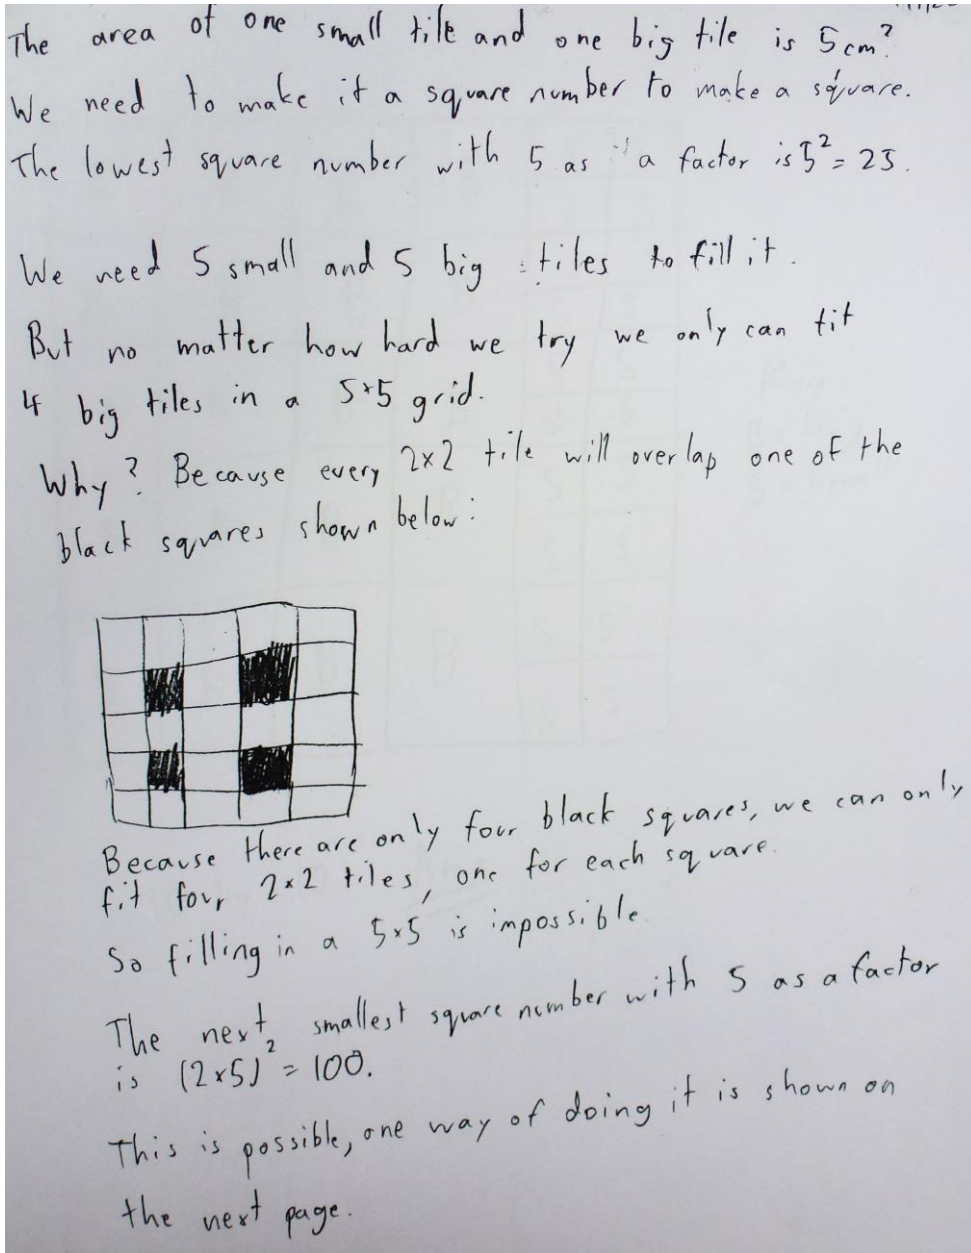 The area of one small tile and one big tile is 5cm².
We need to make it a square number to make a square.
The lowest square number with 5 as a factor is 5² = 25.
We need 5 small and 5 big tiles to fill it.
But no matter how hard we try we only can fit
4 big tiles in a 5×5 grid.
Why? Because every 2×2 tile will overlap one of the
black squares shown below:
Because there are only four black squares, we can only
fit four 2×2 tiles, one for each square.
So filling in a 5×5 is impossible.
The next smallest square number with 5 as a factor
is (2×5)² = 100.
This is possible, one way of doing it is shown on
the next page.